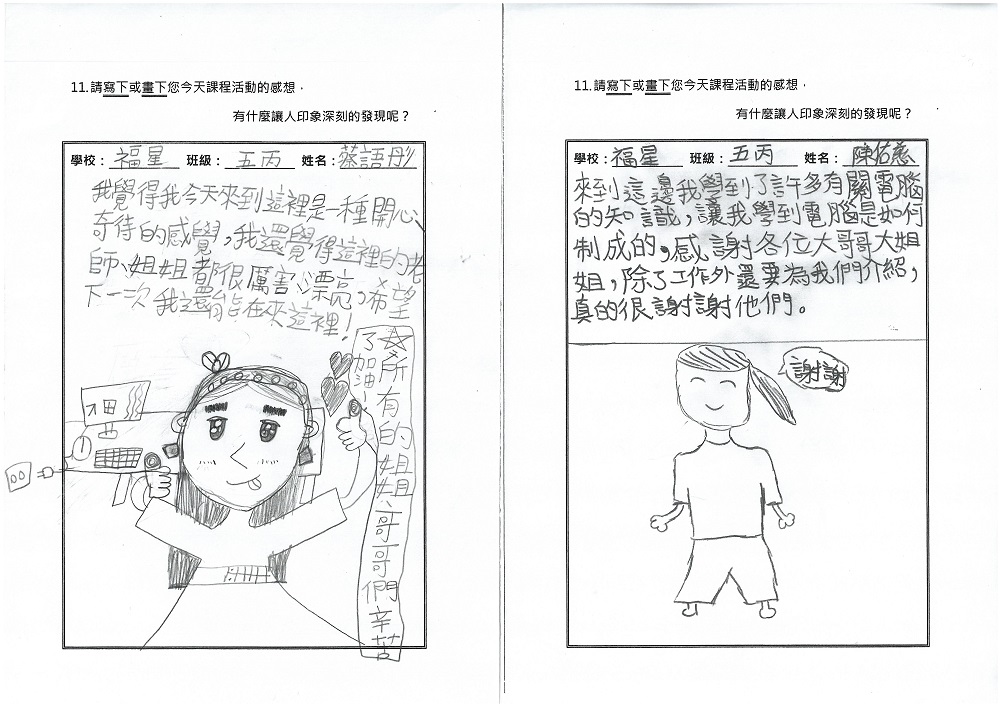 11.請寫下或畫下您今天課程活動的感想，
有什麼讓人印象深刻的發現呢？
學校：福星 班級：五丙 姓名：蔡語彤
我覺得我今天來到這裡是一種開心、
奇待的感覺，我還覺得這裡的老
師、姐姐都很厲害、漂亮，希望
下一次我還能在來這裡！
所有的姐姐、哥哥們辛苦
了加油！
11.請寫下或畫下您今天課程活動的感想，
有什麼讓人印象深刻的發現呢？
學校：福星 班級：五丙 姓名：陳佑慈
來到這邊我學到了許多有關電腦
的知識，讓我學到電腦是如何
制成的，感謝各位大哥哥大姐
姐，除了工作外還要為我們介紹，
真的很謝謝他們。
謝謝